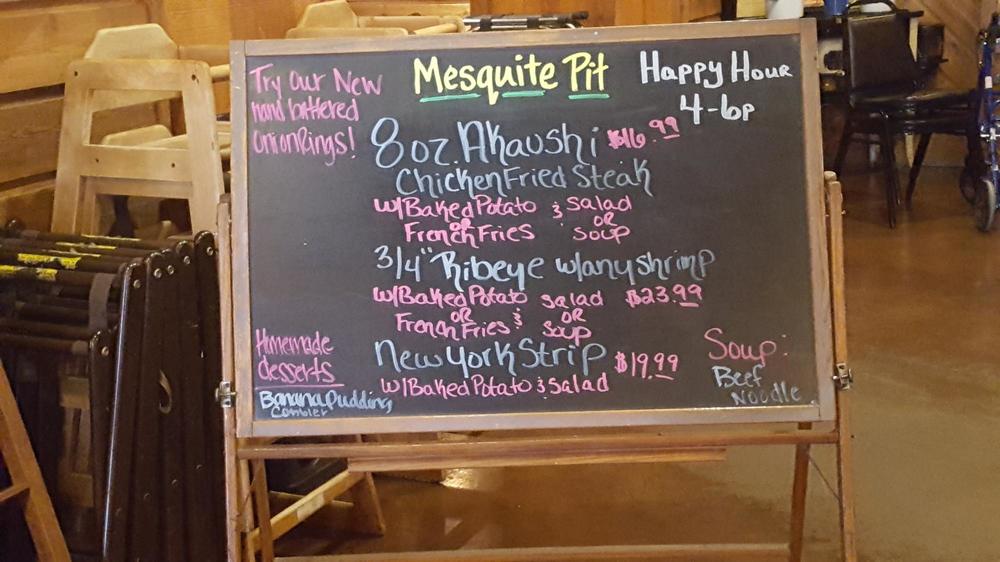 Mesquite Pit
Try Our New
hand battered
OnionRings!
Happy Hour
4-6p
8 oz. Akaushi $16.99
Chicken Fried Steak
w/Baked Potato & Salad
OR OR
French Fries Soup
3/4" Ribeye w/any shrimp
w/Baked Potato Salad $23.99
OR & OR
French Fries Soup
New York Strip $19.99
w/Baked Potato & Salad
Homemade
desserts
Banana Pudding
Cobbler
Soup:
Beef
Noodle